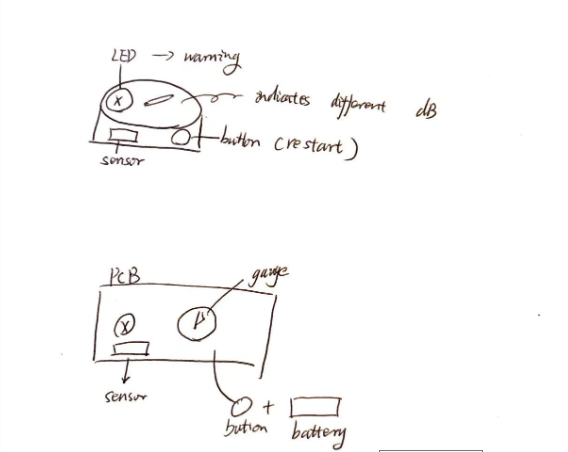 LED → warning
x
indicates different dB
button (restart)
sensor
PCB
gauge
x
sensor
+
button
battery